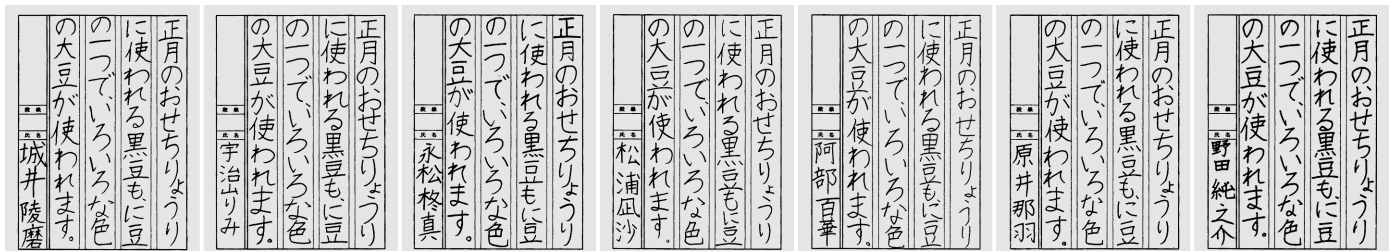 正月のおせちりょうり
に使われる黒豆も、に豆
の一つで、いろいろな色
の大豆が使われます。
段級
氏名
城井陵磨
正月のおせちりょうり
に使われる黒豆も、に豆
の一つで、いろいろな色
の大豆が使われます。
段級
氏名
宇治山りみ
正月のおせちりょうり
に使われる黒豆も、に豆
の一つで、いろいろな色
の大豆が使われます。
段級
氏名
永松柊真
正月のおせちりょうり
に使われる黒豆も、に豆
の一つで、いろいろな色
の大豆が使われます。
段級
氏名
松浦凪沙
正月のおせちりょうり
に使われる黒豆も、に豆
の一つで、いろいろな色
の大豆が使われます。
段級
氏名
阿部百華
正月のおせちりょうり
に使われる黒豆も、に豆
の一つで、いろいろな色
の大豆が使われます。
段級
氏名
原井那羽
正月のおせちりょうり
に使われる黒豆も、に豆
の一つで、いろいろな色
の大豆が使われます。
段級
氏名
野田純之介